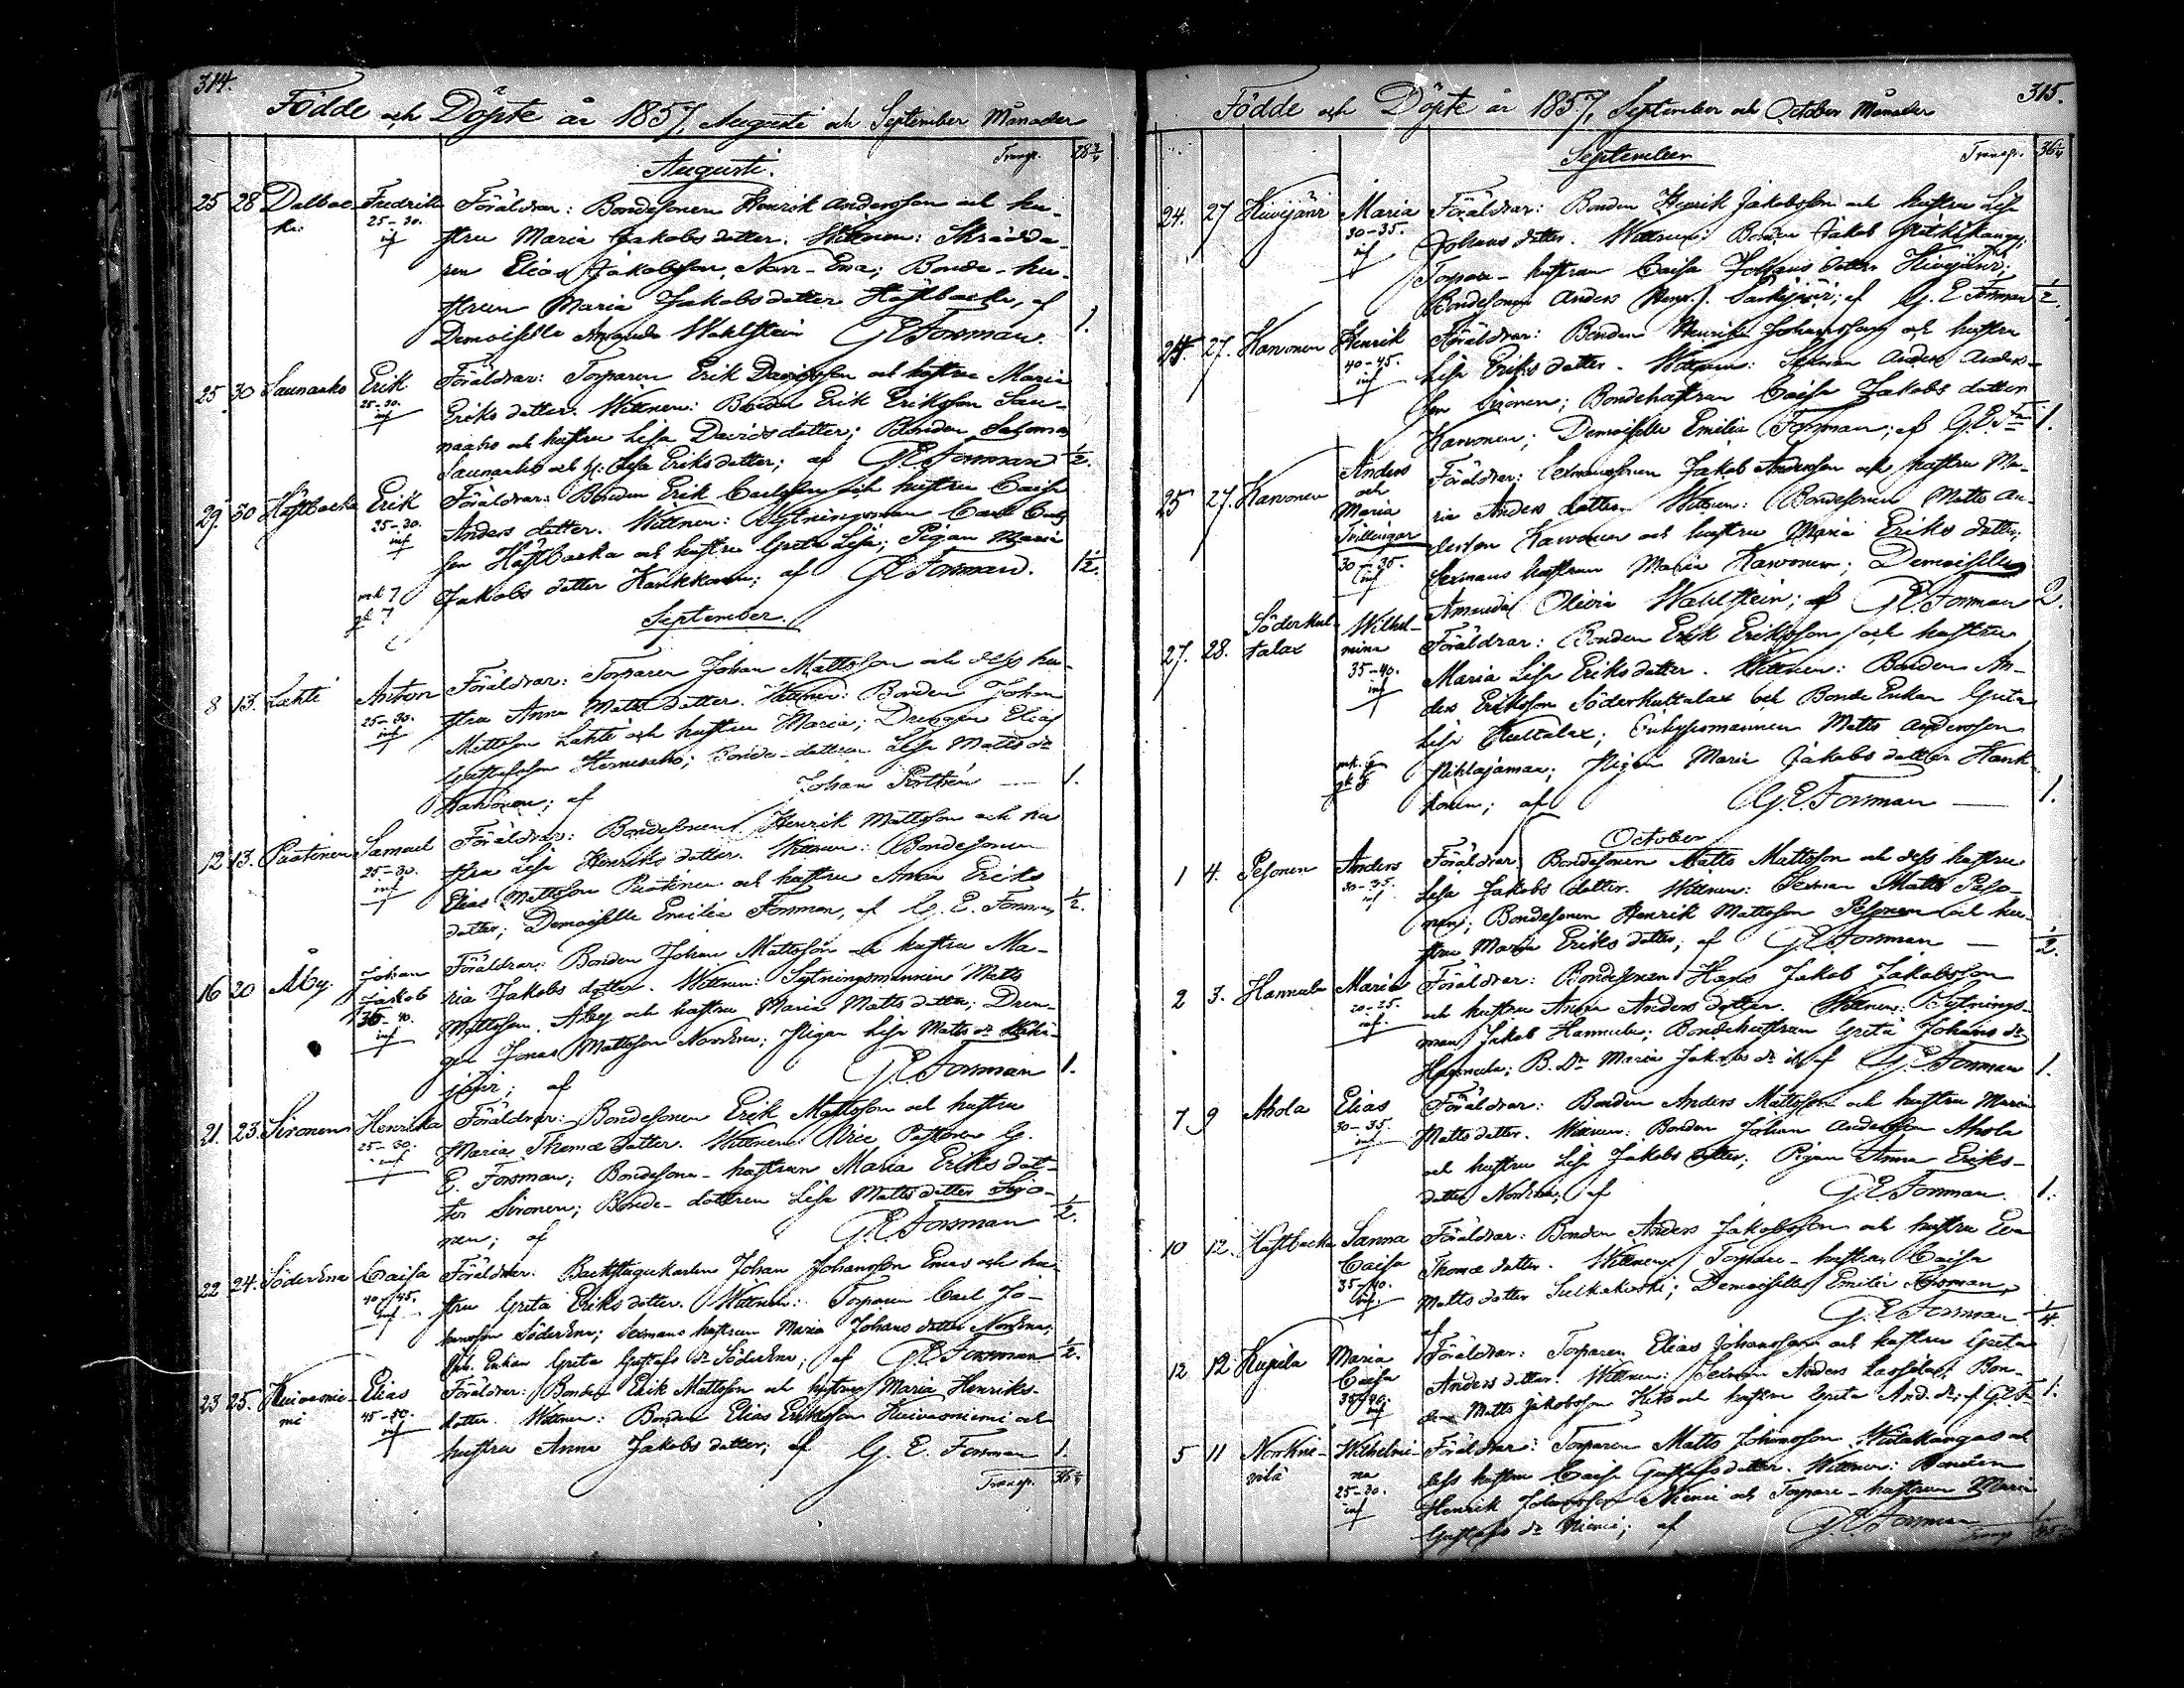 314.
Födde och Döpte år 1857, Augusti och September Månader
Augusti. Transp. 28 3/4
25 28 Dalbac- Fredrika Föräldrar: Bondesonen Henrik Andersson och hu-
ka: 25-30. inf stru Maria Jakobs dotter. Wittnen: Skrädda-
ren Elias Jakobsson, Norr-Ena; Bonde-hu-
strun Maria Jakobsdotter Hästbacka, af
Demoiselle Amanda Wahlstein G.E. Forsman. 1.
25 30 Saunaaho Erik Föräldrar: Torparen Erik Davidsson och hustru Maria
25-30. inf Eriks dotter. Wittnen: Bonden Erik Eriksson Sau-
naaho och hustru Lisa Davidsdotter; Bonden Salomon
Saunaaho och h: Lisa Eriksdotter; af G.E. Forsman 1/2.
29. 30 Hästbacka Erik Föräldrar: Bonden Erik Carlsson och hustru Caisa
25-30. inf Anders dotter. Wittnen: Sytningsman Carl Carls
son Hästbacka och hustru Greta Lisa; Pigan Maria
mk 7 Jakobs dotter Kankkonen; af G.E. Forsman. 1/2.
qk 7
September.
8 13. Lahti Anton Föräldrar: Torparen Johan Mattsson och dess hu-
25-30. inf stru Anna Matts dotter. Wittnen: Bonden Johan
Mattsson Lahti och hustru Maria; Drengen Elias
Gustafsson; Bonde-dottren Lisa Matts dr
af Johan 1.
12 13. Puotinen Samuel Föräldrar: Bondesonen Henrik Mattsson och hu
25-30. inf stru Lisa Henriks dotter. Wittnen: Bondesonen
Elias Mattsson Puotinen och hustru Anna Eriks
dotter; Demoiselle Emilia Forsman, af G. E. Forsman 1/2.
16 20 Åby. Johan Föräldrar: Bonden Johan Mattsson och hustru Ma-
Jakob ria Jakobs dotter. Wittnen: Sytningsmannen Matts
35-40. inf Mattsson Åby och hustru Maria Matts dotter; Dren-
gen Jonas Mattsson NorrEna; Pigan Lisa Matts dr
järvi; af G.E. Forsman 1.
21. 23. Sironen Henrika Föräldrar: Bondesonen Erik Mattsson och hustru
25-30. inf Maria Thomæ dotter. Wittnen: Vice Pastoren G.
E. Forsman; Bondesons-hustrun Maria Eriks dot-
ter Sironen; Bonde-dottren Lisa Matts dotter Siro-
nen; af G.E. Forsman 1/2.
22 24. SöderEna Caisa Föräldrar: Backstugukarlen Johan Johansson Enäs och hu-
40-45. inf stru Greta Eriks dotter. Wittnen: Torparen Carl Jo-
hansson SöderEna; Sexmans hustrun Maria Johans dotter NorrEna;
Enkan Greta Gustafs dr SöderEna; af G.E. Forsman 1/2.
23 25. Kuivasnie- Elias Föräldrar: Bonden Erik Mattsson och hustru Maria Henriks-
mi 45-50. inf dotter. Wittnen: Bonden Elias Eriksson Kuivasniemi och
hustru Anna Jakobs dotter; af G. E. Forsman 1.
Transp. 36 1/4
315.
Födde och Döpte år 1857, September och October Månader
September Transp. 36 1/4
24. 27 Hirvijärv Maria Föräldrar: Bonden Henrik Jakobsson och hustru Lisa
30-35. inf Johans dotter. Wittnen: Bonden Jakob
Torpare-hustrun Caisa Johans dotter Hirvijärv;
Bondesonen Anders Henr. s. Särkijärv; af G. E Forsman 1/2.
24 27. Karvonen Henrik Föräldrar: Bonden Henrik Johansson och hustru
40-45. inf Lisa Eriks dotter. Wittnen: Sexman Anders Anders-
son Sironen; Bondehustrun Caisa Jakobs dotter
Karvonen; Demoiselle Emilia Forsman; af G.E. Fn 1.
25 27. Karvonen Anders Föräldrar: Sexmanssonen Jakob Andersson och hustru Ma-
och ria Anders dotter. Wittnen: Bondesonen Matts An-
Maria dersson Karvonen och hustru Maria Eriks dotter;
Tvillingar Sexmans hustrun Maria Karvonen; Demoiselle
30-35. inf Amanda Olivia Wahlstein; af G.E. Forsman 2.
27. 28. Söderkul- Wilhel- Föräldrar: Bonden Erik Eriksson och hustru
talax mina Maria Lisa Eriksdotter. Wittnen: Bonden An-
35-40. inf ders Eriksson Söderkultalax och Bonde Enkan Greta
Lisa Kultalax; Matts Andersson
mk. Pigan Maria Jakobs dotter Kank
qk 8 konen; af G.E. Forsman 1.
October
1 4. Pesonen Anders Föräldrar: Bondesonen Matts Mattsson och dess hustru
30-35. inf Lisa Jakobs dotter. Wittnen: Sexman Matts Peso-
nen; Bondesonen Henrik Mattsson Pesonen och hu-
stru Maria Eriks dotter; af G.E. Forsman 1/2.
2 3. Hannula Maria Föräldrar: Bondesonen Hans Jakob Jakobsson
20-25. inf. och hustru Anna Anders dotter. Wittnen: Sytnings-
man Jakob Hannula; Bondehustrun Greta Johans dr
Hannula; B. dr Maria Jakobs dr ib. af G.E. Forsman 1.
7 9 Ahola Elias Föräldrar: Bonden Anders Mattsson och hustru Maria
30-35. inf Matts dotter. Wittnen: Bonden Johan Andersson Ahola
och hustru Lisa Jakobs dotter; Pigan Anna Eriks-
dotter NorrEna; af G.E. Forsman. 1.
10 12. Hästbacka Sanna Föräldrar: Bonden Anders Jakobsson och hustru Eva
Caisa Thomæ dotter. Wittnen: Torpare-hustrun Caisa
35-40. inf. Matts dotter Sulkakoski; Demoiselle Emilie Forsman,
af G. E. Forsman 1/4.
12 12 Kupila Maria Föräldrar: Torparen Elias Johansson och hustru Greta
Caisa Anders dotter. Wittnen: Sexman Anders Lassila; Bon-
35-40. inf den Matts Jakobsson och hustru Greta And. dr; af G.E. Fn 1.
5 11 Wilhelmi- Föräldrar: Torparen Matts Johansson Wiitakangas och
na dess hustru Caisa Gustafsdotter. Wittnen: Bonden
25-30. inf Henrik Johansson Niemi och Torpare-hustrun Maria
Gustafs dr Niemi; af G.E. Forsman
Transp.